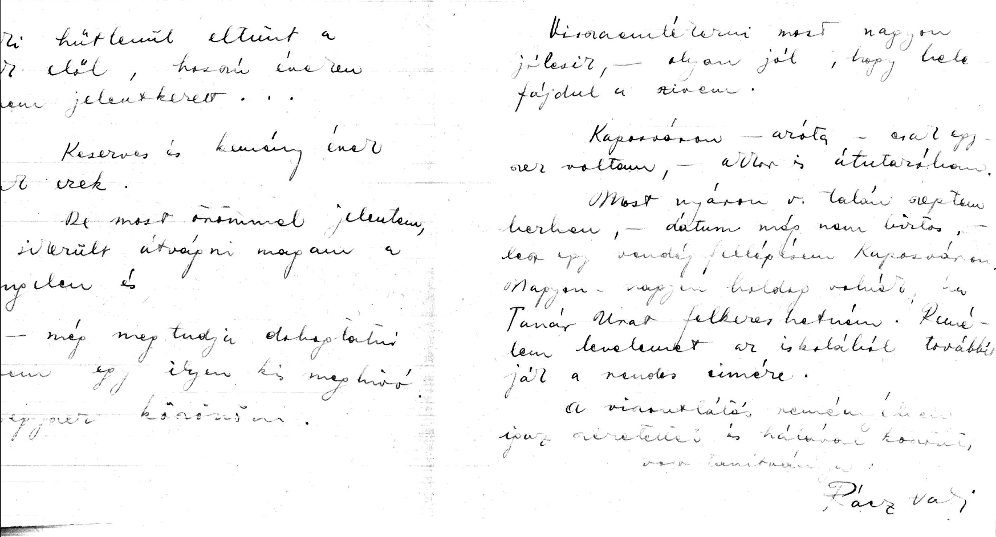 hűtlenül eltűnt a
elől, hosszú éveken
nem jelentkezett...
Keserves és kemény évek
ezek.
De most örömmel jelentem,
sikerült átvágni magam a
és
— még meg tudja dobogtatni
egy ilyen kis meghívó.
köszönöm.
Visszaemlékezni most nagyon
jólesik, — olyan jól, hogy bele-
fájdul a szívem.
Kaposváron — azóta — csak egy-
szer voltam, — akkor is átutazóban.
Most nyáron v. talán szeptem
berben, — dátum még nem biztos, —
lesz egy vendég fellépésem Kaposváron.
Nagyon-nagyon boldog volnék, ha
Tanár Urat felkereshetném. Remé-
lem levelemet az iskolából továbbít
ják a rendes címére.
A viszontlátás reményében
igaz szeretettel és hálával köszönti,
Rácz Vali